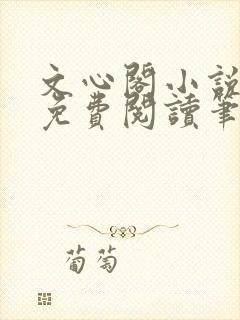 文心閣小說
免費閱讀筆
葡萄